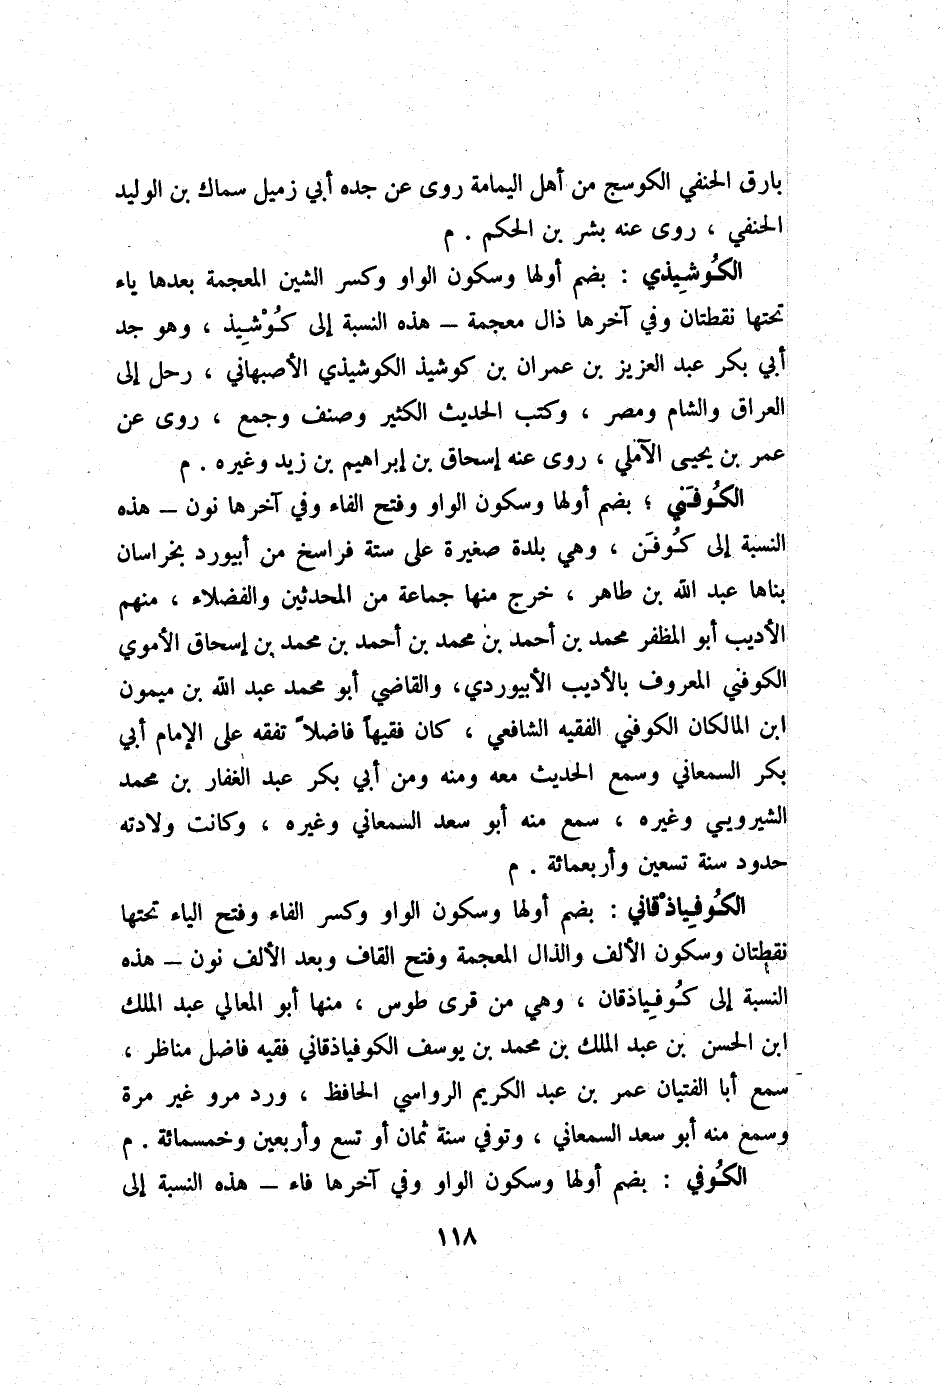 بارق الحنفي الكوسج من أهل اليمامة روى عن جده أبي زميل سماك بن الوليد
الحنفي ، روى عنه بشر بن الحكم . م
الكُوشِيذي : بضم أولها وسكون الواو وكسر الشين المعجمة بعدها ياء
تحتها نقطتان وفي آخرها ذال معجمة – هذه النسبة إلى كُوْشِيذ ، وهو جد
أبي بكر عبد العزيز بن عمران بن كوشيذ الكوشيذي الأصبهاني ، رحل إلى
العراق والشام ومصر ، وكتب الحديث الكثير وصنف وجمع ، روى عن
عمر بن يحيى الآملي ، روى عنه إسحاق بن إبراهيم بن زيد وغيره . م
الكُوفَني ؛ بضم أولها وسكون الواو وفتح الفاء وفي آخرها نون – هذه
النسبة إلى كُوفَن ، وهي بلدة صغيرة على ستة فراسخ من أبيورد بخراسان
بناها عبد الله بن طاهر ، خرج منها جماعة من المحدثين والفضلاء ، منهم
الأديب أبو المظفر محمد بن أحمد بن محمد بن أحمد بن محمد بن إسحاق الأموي
الكوفني المعروف بالأديب الأبيوردي، والقاضي أبو محمد عبد الله بن ميمون
ابن المالكان الكوفني الفقيه الشافعي ، كان فقيهاً فاضلاً تفقه على الإمام أبي
بكر السمعاني وسمع الحديث معه ومنه ومن أبي بكر عبد الغفار بن محمد
الشيرويي وغيره ، سمع منه أبو سعد السمعاني وغيره ، وكانت ولادته
حدود سنة تسعين وأربعمائة . م
الكُوفِياذْقاني : بضم أولها وسكون الواو وكسر الفاء وفتح الياء تحتها
نقطتان وسكون الألف والذال المعجمة وفتح القاف وبعد الألف نون – هذه
النسبة إلى كُوفِياذقان ، وهي من قرى طوس ، منها أبو المعالي عبد الملك
ابن الحسن بن عبد الملك بن محمد بن يوسف الكوفياذقاني فقيه فاضل مناظر ،
سمع أبا الفتيان عمر بن عبد الكريم الرواسي الحافظ ، ورد مرو غير مرة
وسمع منه أبو سعد السمعاني ، وتوفي سنة ثمان أو تسع وأربعين وخمسمائة . م
الكُوفي : بضم أولها وسكون الواو وفي آخرها فاء – هذه النسبة إلى
١١٨